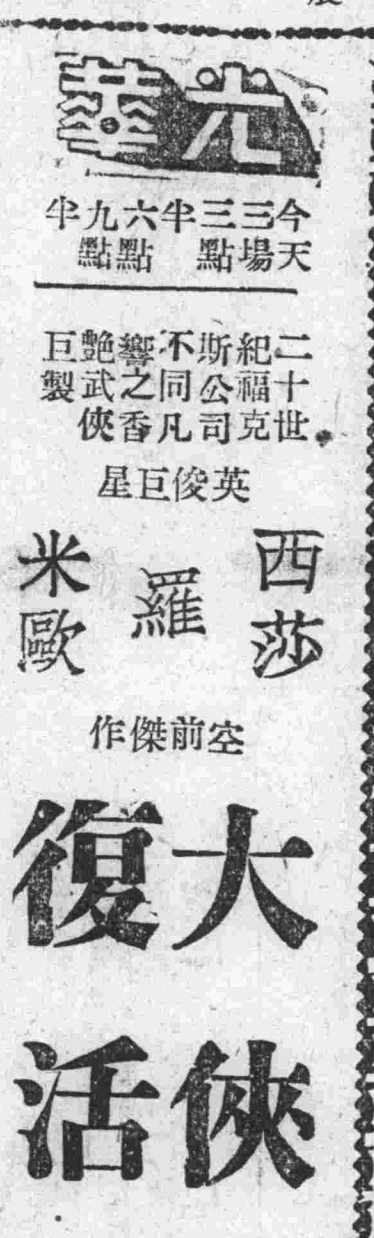 光華
今天
三場
三點
半
六點
九點
半
二十世
紀福克
斯公司
不同凡
響之香
艷武俠
巨製
英俊巨星
西莎
羅
米歐
空前傑作
大俠
復活